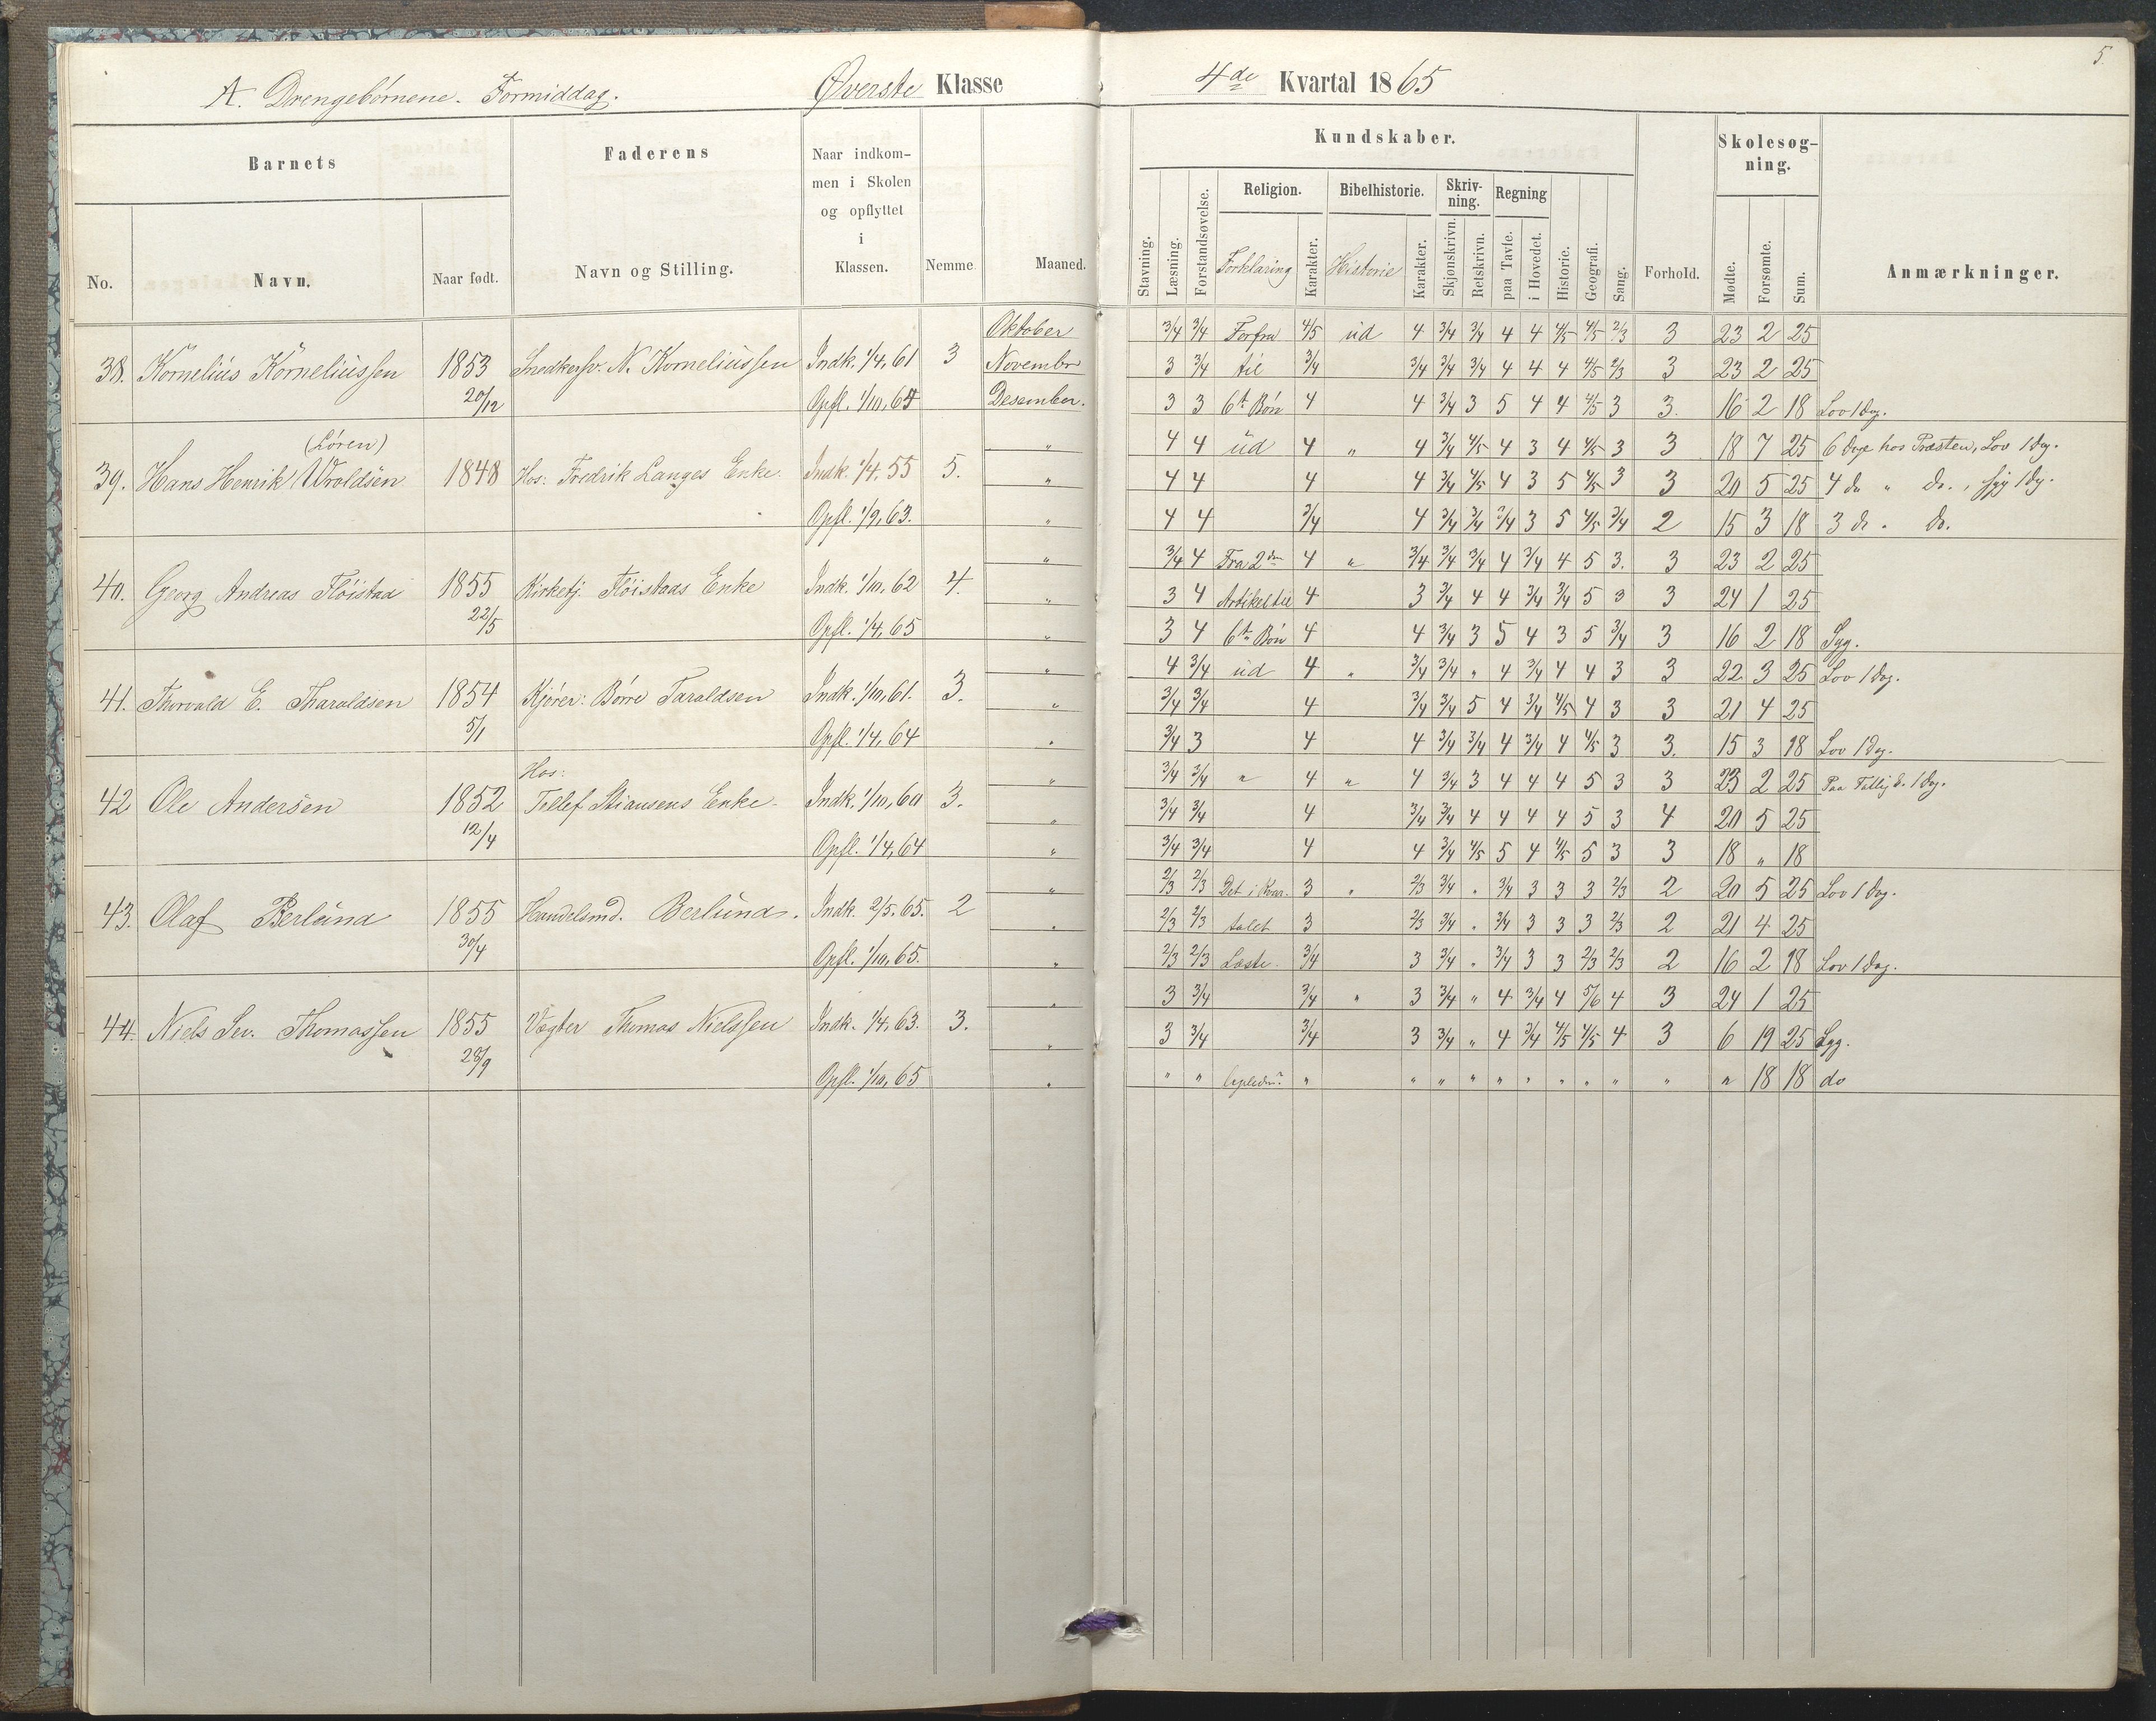 A. Drengebørnene. Formiddag. Øverste Klasse
4de Kvartal 1865
5.
Barnets
Faderens
Naar indkom-
men i Skolen
og opflyttet
i
Klassen.
No. Navn. Naar født. Navn og Stilling. Nemme Maaned.
Kundskaber.
Skolesøg-
ning.
Religion. Bibelhistorie. Skriv-
ning. Regning
Stavning. Læsning. Forstandsøvelse. Forklaring Karakter. Historie Karakter. Skjønskrivn. Retskrivn. paa Tavle. i Hovedet. Historie. Geografi. Sang. Forhold. Mødte. Forsømte. Sum. Anmærkninger.
Oktober 3/4 3/4 Forfra 4/5 ud 4 3/4 3/4 4 4 4/5 4/5 2/3 3 23 2 25
38. Kornelius Korneliussen 1853 Snedkersv. N. Korneliussen Indk. 1/4, 61 3 November 3 3/4 til 3/4 3/4 3/4 3/4 4 4 4 4/5 2/3 3 23 2 25
20/12 Opfl. 1/10, 65 Desember. 3 3 6te Bøn 4 4 3/4 3 5 4 4 4/5 3 3. 16 2 18 Lov 1 Dag.
(Søren) " 4 4 ud 4 " 4 3/4 4/5 4 3 4 4/5 3 3 18 7 25 6 Dage hos Præsten, Lov 1 Dag.
39. Hans Henrik Wroldsen 1848 Hos: Fredrik Langes Enke. Indk. 1/4, 55 5. " 4 4 4 4 3/4 4/5 4 3 5 4/5 3 3 20 5 25 4 do " do., syg 1 Dg.
Opfl. 1/9, 63. " 4 4 3/4 4 3/4 3/4 3/4 3 5 4/5 3/4 2 15 3 18 3 do. do.
" 3/4 4 Fra 2den 4 " 3/4 3/4 3/4 4 3/4 4 5 3. 3 23 2 25
40. Georg Andreas Fløistad 1855 Kirketj. Fløistads Enke Indk. 1/10, 62 4. " 3 4 Artikel til 4 3 3/4 4 4 3/4 3/4 5 3 3 24 1 25
22/5 Opfl. 1/4, 65 " 3 4 6te Bøn 4 4 3/4 3 5 4 3 5 3/4 3 16 2 18 Syg.
" 4 3/4 ud 4 " 3/4 3/4 " 4 3/4 4 4 3 3 22 3 25 Lov 1 Dag.
41. Thorvald E. Tharaldsen 1854 Kjører: Børre Taraldsen Indk. 1/10, 61. 3. " 3/4 3/4 4 3/4 3/4 5 4 3/4 4/5 4 3 3 21 4 25
5/1 Opfl. 1/4, 64 " 3/4 3 4 4 3/4 3/4 4 3/4 4 4/5 3 3. 15 3 18 Lov 1 Dag.
Hos: " 3/4 3/4 " 4 " 4 3/4 3 4 4 4 5 3 3 23 2 25
42 Ole Andersen 1852 Tellef Stiansens Enke. Indk. 1/10, 60 3. " 3/4 3/4 4 3/4 3/4 4 4 4 4 5 3 4 20 5 25
12/4 Opfl. 1/4, 64 " 3/4 3/4 4 4 3/4 4/5 5 4 4/5 5 3 3 18 " 18
" 2/3 2/3 3 " 2/3 3/4 " 3/4 3 3 3 2/3 2 20 5 25 Lov 1 Dag.
43. Olaf Berlund 1855 Handelsmd. Berlund. Indk. 2/5. 65. 2 " 2/3 2/3 talet 3 2/3 3/4 " 3/4 3 3 3 2/3 2 21 4 25
30/4 Opfl. 1/10, 65. " 2/3 2/3 3/4 3 3/4 " 3/4 3 3 2/3 2/3 2 16 2 18 Lov 1 Dag.
" 3 3/4 3/4 " 3 3/4 " 4 3/4 4 5/6 4 3 24 1 25
44. Niels Sev. Thomassen 1855 Vægter Thomas Nielssen Indk. 1/4, 63. 3. " 3 3/4 3/4 3 3/4 " 4 3/4 4/5 4/5 4 3 6 19 25 Syg.
28/9 Opfl. 1/10, 65 " " " " " " " " " " " " " " " 18 18 do